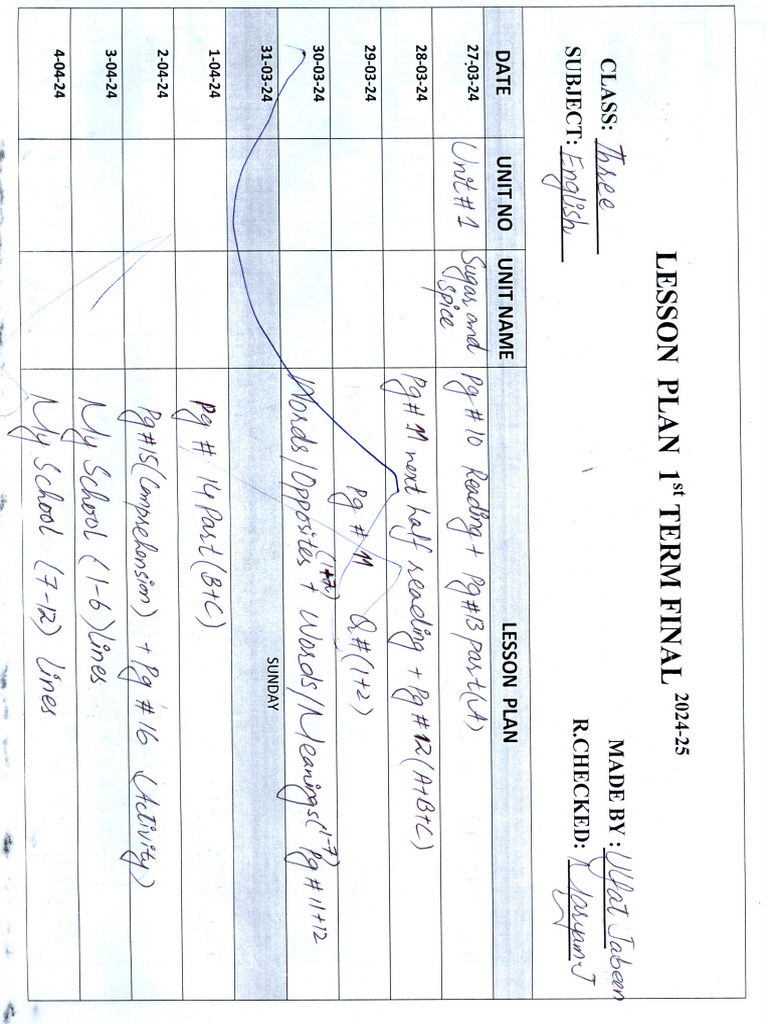 LESSON PLAN 1st TERM FINAL 2024-25
CLASS: Three MADE BY : Ulfat Jabeen
SUBJECT: English R.CHECKED: Maryam.J
DATE UNIT NO UNIT NAME LESSON PLAN
27-03-24 Unit # 1 Sugar and spice Pg # 10 Reading + Pg # 13 part (A)
28-03-24 Pg # 11 next half reading + Pg # 12 (A+B+C)
29-03-24 Pg # 11 Q # (1+2)
30-03-24 Words/Opposites (1+7) + Words/Meanings (1-7) Pg # 11+12
31-03-24 SUNDAY
1-04-24 Pg # 14 Part (B+C)
2-04-24 Pg # 15 (Comprehension) + Pg # 16 (Activity)
3-04-24 My School (1-6) lines
4-04-24 My School (7-12) lines